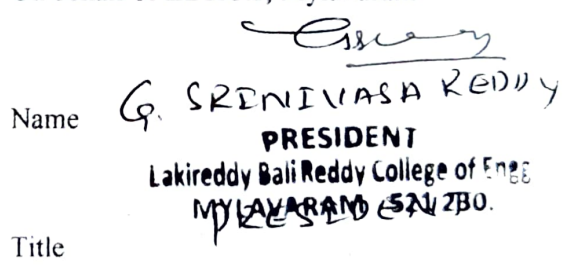 Name G. SRINIVASA REDDY
PRESIDENT
Lakireddy Bali Reddy College of Engg
MYLAVARAM - 521 230.
PRESIDENT
Title